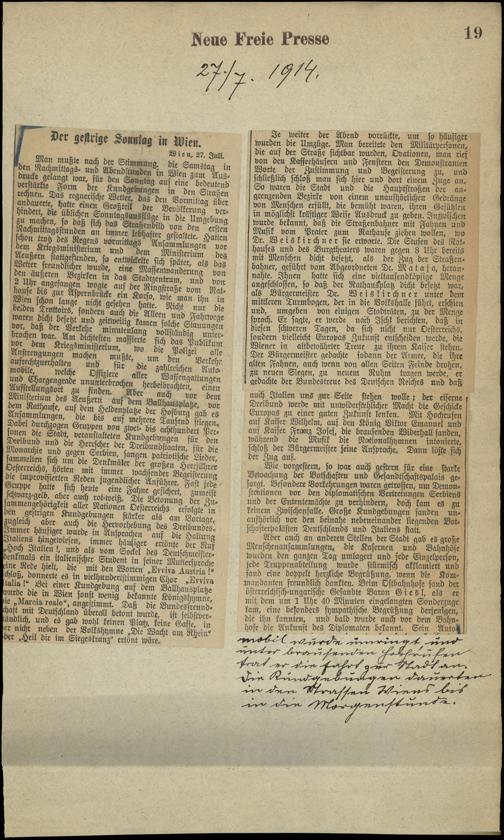 19
Neue Freie Presse
27./7. 1914.
Der gestrige Sonntag in Wien.
Wien, 27. Juli.
Man mußte nach der Stimmung, die Samstag in
den Nachmittags- und Abendstunden in Wien zum Aus-
druck gelangt war, für den Sonntag auf eine bedeutend
verstärkte Form der Kundgebungen in den Straßen
rechnen. Das regnerische Wetter, das den Vormittag über
andauerte, hatte einen Großteil der Bevölkerung ver-
hindert, die üblichen Sonntagsausflüge in die Umgebung
zu machen, so daß sich das Straßenbild von den ersten
Nachmittagsstunden an immer lebhafter gestaltete. Hatten
schon trotz des Regens vormittags Ansammlungen vor
dem Kriegsministerium und dem Ministerium des
Aeußern stattgefunden, so entwickelte sich später, als das
Wetter freundlicher wurde, eine Massenwanderung von
den äußeren Bezirken in das Stadtzentrum, und von
2 Uhr angefangen wogte auf der Ringstraße vom Rat-
hause bis zur Aspernbrücke ein Korso, wie man ihn in
Wien schon lange nicht gesehen hatte. Nicht nur die
beiden Trottoirs, sondern auch die Alleen und Fahrbahn
waren dicht besetzt und zeitweilig kamen solche Stauungen
vor, daß der Verkehr minutenlang vollständig unter-
brochen war. Am dichtesten massierte sich das Publikum
vor dem Kriegsministerium, wo die Polizei alle
Anstrengungen machen mußte, um den Verkehr
aufrechtzuerhalten und für die zahlreichen Auto-
mobile, welche Offiziere aller Waffengattungen
und Chargengrade ununterbrochen herbeibrachten, einen
Aufstellungsort zu finden. Aber auch vor dem
Ministerium des Aeußern, auf dem Ballhausplatze,
dem Rathause, auf dem Heldenplatze der Hofburg gab es
Ansammlungen, die bis auf mehrere Tausend stiegen.
Dabei durchzogen Gruppen von zwei- bis achthundert Per-
sonen die Stadt, veranstalteten Kundgebungen für den
Dreibund und die Herrscher der Dreibundstaaten, für die
Monarchie und gegen Serbien, sangen patriotische Lieder,
sammelten sich um die Denkmäler der großen Heerführer
Oesterreichs, hörten mit immer wachsender Begeisterung
die improvisierten Reden jugendlicher Anführer. Fast jede
Gruppe hatte sich heute eine Fahne gesichert, zumeist
schwarz-gelb, aber auch rot-weiß. Die Betonung der Zu-
sammengehörigkeit aller Nationen Oesterreichs erfolgte in
den gestrigen Kundgebungen stärker als am Vortage,
zugleich aber auch die Hervorhebung des Dreibundes.
Immer häufiger wurde in Ansprachen auf die Haltung
Italiens hingewiesen, immer häufiger ertönte der Ruf
„Hoch Italien!, und als vom Sockel des Deutschmeister-
denkmals ein italienischer Student in seiner Muttersprache
eine Rede hielt, die mit den Worten „Evviva Austria!“
schloß, donnerte es in vielhundertstimmigem Chor „Evviva
Italia!“ Bei einer Kundgebung auf dem Ballhausplatze
wurde die in Wien sonst wenig bekannte Königshymne,
die „Marcia reale“, angestimmt. Daß die Bundesfreund-
schaft mit Deutschland überall betont wurde, ist selbstver-
ständlich, und es gab wohl keinen Platz, keine Gasse, in
der nicht neben der Volkshymne „Die Wacht am Rhein“
oder „Heil dir im Siegeskranz“ ertönt wäre.
Je weiter der Abend vorrückte, um so häufiger
wurden die Umzüge. Man bereitete den Militärpersonen,
die auf der Straße sichtbar wurden, Ovationen, man rief
von den Kaffeehäusern und Fenstern den Demonstranten
Worte der Zustimmung und Begeisterung zu, und
schließlich schloß man sich hier und dort einem Zuge an.
So waren die Stadt und die Hauptstraßen der an-
grenzenden Bezirke von einem unaufhörlichen Gedränge
von Menschen erfüllt, die bemüht waren, ihren Gefühlen
in möglichst kräftiger Weise Ausdruck zu geben. Inzwischen
wurde bekannt, daß die Straßenbahner mit Fahnen und
Musik vom Prater zum Rathaus ziehen wollen, wo
Dr. Weiskirchner sie erwarte. Die Stufen des Rat-
hauses und des Burgtheaters waren gegen 8 Uhr bereits
mit Menschen dicht besetzt, als der Zug der Straßen-
bahner, geführt von Abgeordneten Dr. Mataja, heran-
nahte. Ihnen hatte sich eine vieltausendköpfige Menge
angeschlossen, so daß der Rathausplatz dicht besetzt war,
als Bürgermeister Dr. Weiskirchner unter dem
mittleren Turmbogen, der in die Volkshalle führt, erschien
und, umgeben von einigen Stadträten, zu der Menge
sprach. Er sagte, er werde nach Ischl berichten, daß in
diesen schweren Tagen, da sich nicht nur Oesterreichs,
sondern vielleicht Europas Zukunft entscheiden werde, die
Wiener in altbewährter Treue zu ihrem Kaiser stehen.
Der Bürgermeister gedachte sodann der Armee, die ihre
alten Fahnen, auch wenn von allen Seiten Feinde drohen,
zu neuen Siegen, zu neuem Ruhm tragen werde, er
gedachte der Bundestreue des Deutschen Reiches und daß
auch Italien uns zur Seite stehen wolle; der eiserne
Dreibund werde mit unwiderstehlicher Macht die Geschicke
Europas zu einer guten Zukunft lenken. Mit Hochrufen
auf Kaiser Wilhelm, auf den König Viktor Emanuel und
auf Kaiser Franz Josef, die brausenden Widerhall fanden,
während die Musik die Nationalhymnen intonierte,
schloß der Bürgermeister seine Ansprache. Dann löste sich
der Zug auf.
Wie vorgestern, so war auch gestern für eine starke
Bewachung der Botschaften und Gesandtschaftspalais ge-
sorgt. Besondere Vorkehrungen waren getroffen, um Demon-
strationen vor den diplomatischen Vertretungen Serbiens
und der Ententemächte zu verhindern, doch kam es zu
keinem Zwischenfalle. Große Kundgebungen fanden un-
aufhörlich vor den beinahe nebeneinander liegenden Bot-
schafterpalästen Deutschlands und Italiens statt.
Aber auch an anderen Stellen der Stadt gab es große
Menschenansammlungen, die Kasernen und Bahnhöfe
wurden den ganzen Tag umlagert und jede Einzelperson,
jede Truppenabteilung wurde stürmisch akklamiert und
fand eine doppelt herzliche Begrüßung, wenn die Kom-
mandanten freundlich dankten. Beim Ostbahnhofe fand der
österreichisch-ungarische Gesandte Baron Giesl, als er
mit dem um 1 Uhr 40 Minuten eingelangten Sonderzuge
kam, eine besonders sympathische Begrüßung derjenigen,
die ihn kannten, und bald wurde auch vor dem Bahn-
hofe die Ankunft des Diplomaten bekannt. Sein Auto
mobil wurde umringt und
unter brausenden Hochrufen
trat er die Fahrt zur Stadt an.
Die Kundgebungen dauerten
in den Strassen Wiens bis
in die Morgenstunde.